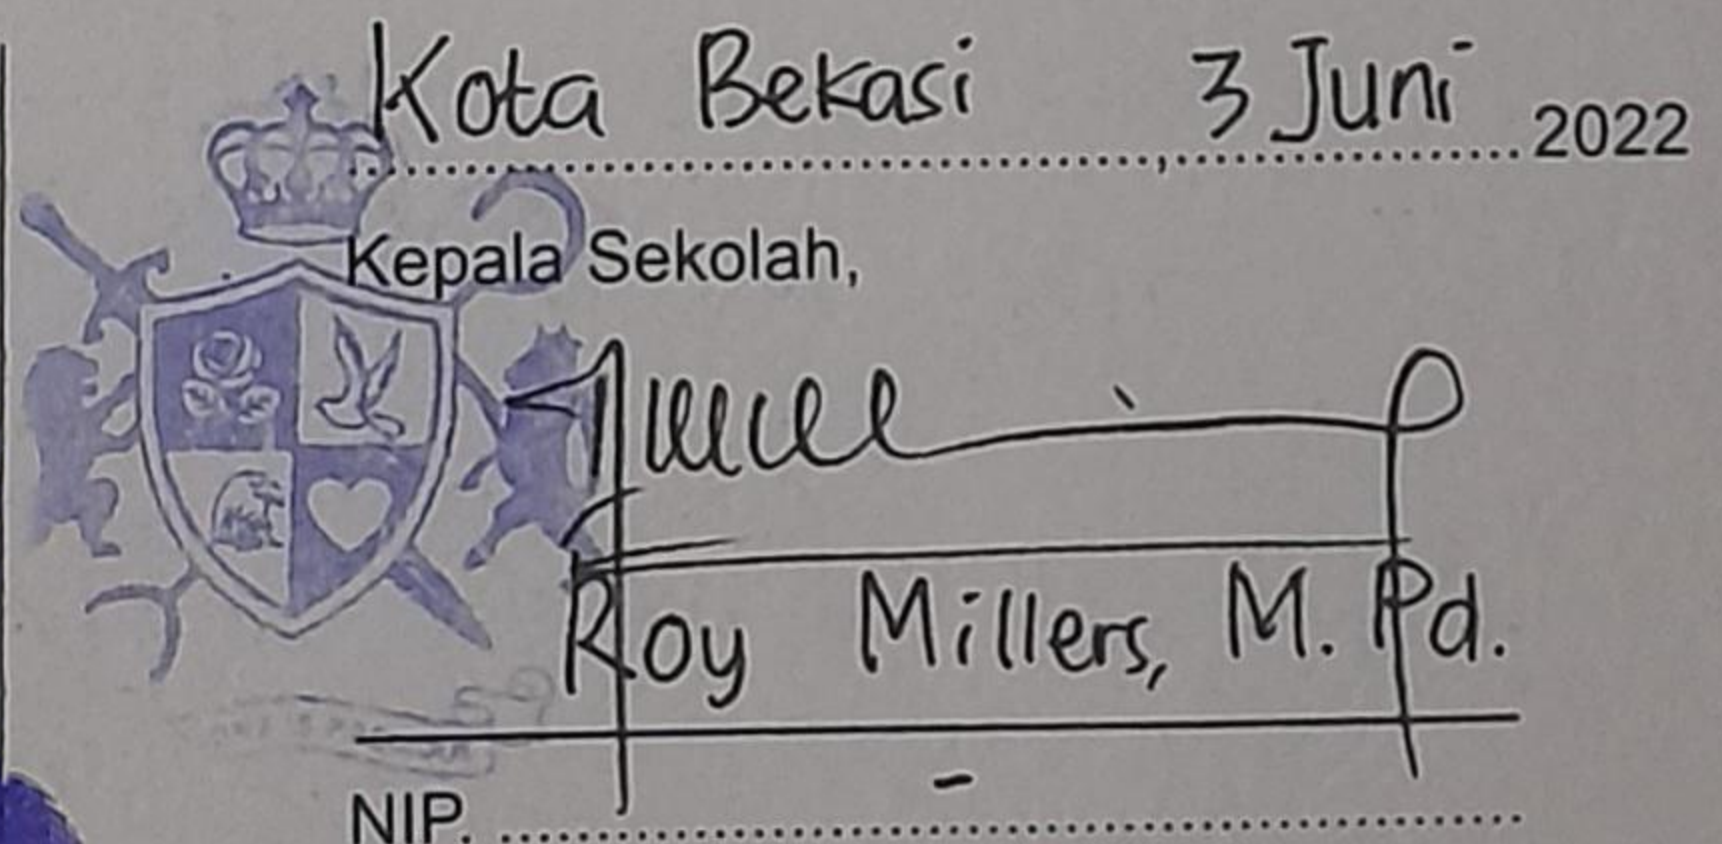 Kota Bekasi, 3 Juni 2022
Kepala Sekolah,
Roy Millers, M.Pd.
NIP. -